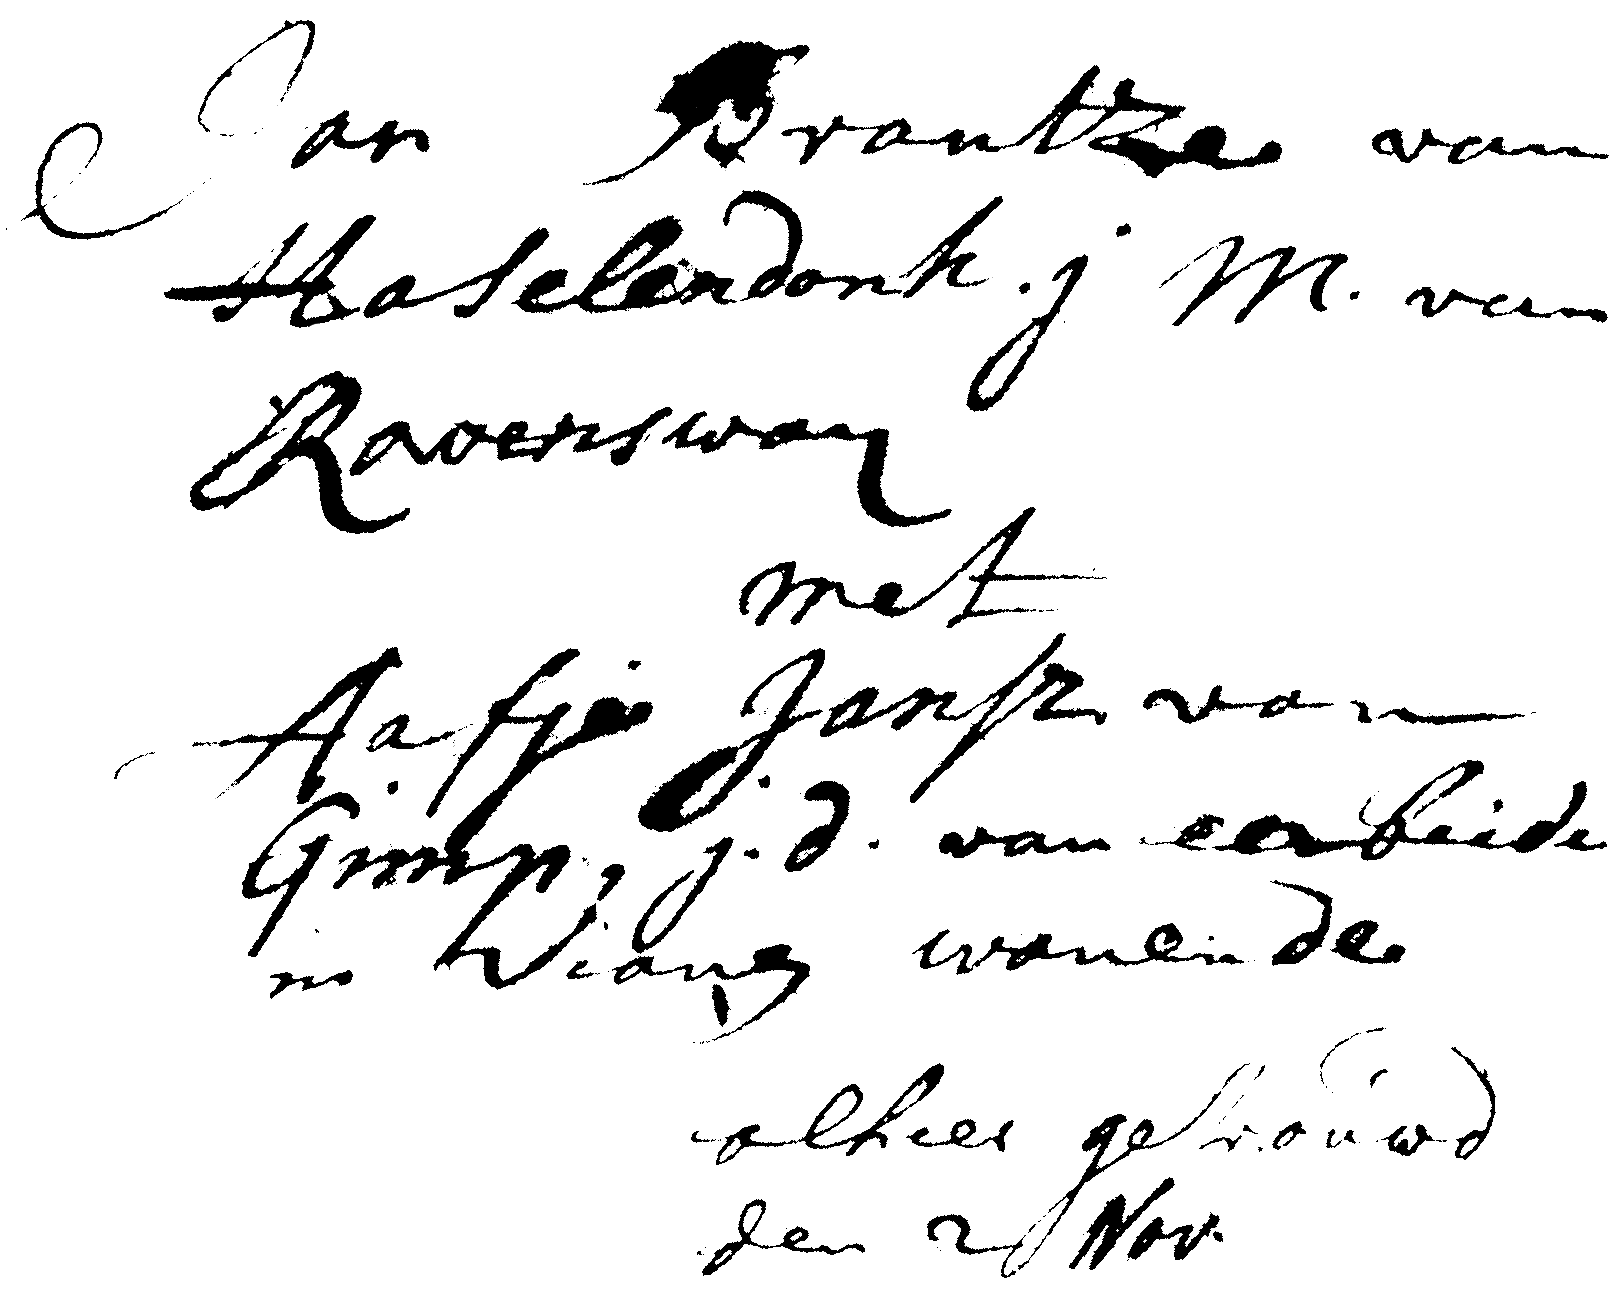 Jan Brantze van
Haselendonk. j M. van
Ravensway
met
Aafje Jansz. van
j. d. van beide
in Viane wonende
alhier getrouwd
den 2 Nov.